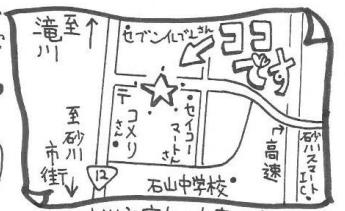 至
滝川
セブンイレブンさん
ココ
です
〒
コメリ
さん
セイコー
マートさん
至
砂川
市街
12
石山中学校
高速
砂川スマート
IC